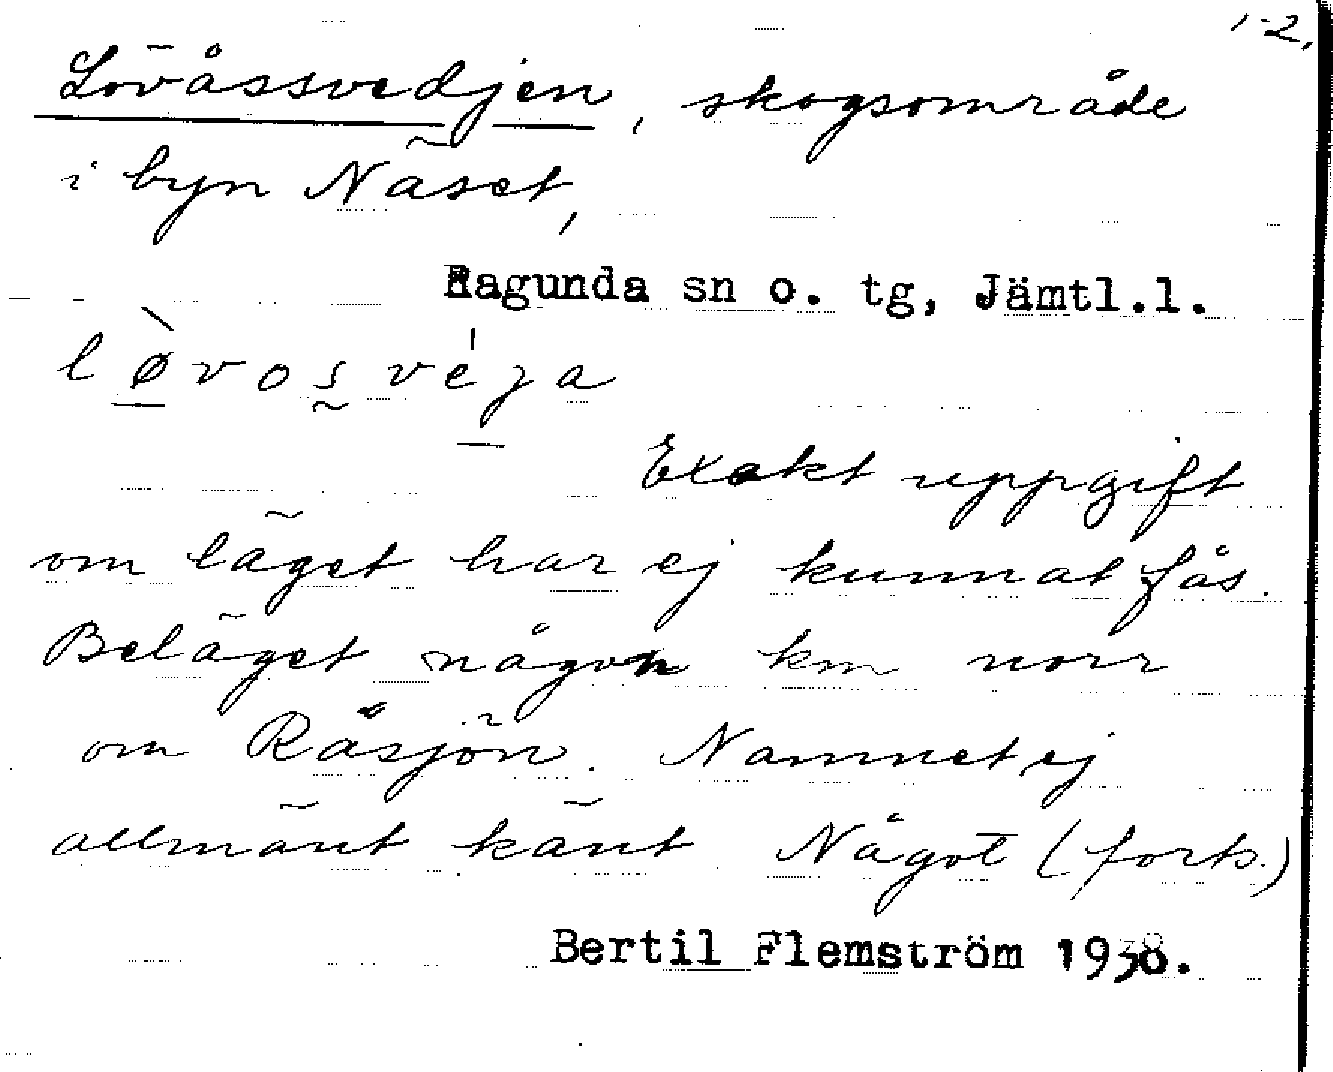 1-2.
Lövåssvedjen, skogsområde
i byn Näset,
Ragunda sn o. tg, Jämtl.l.
lø̀vosvéȷa
Exakt uppgift
om läget har ej kunnat fås.
Beläget någon km norr
om Råsjön. Namnet ej
allmänt känt Något (forts.)
Bertil Flemström 1938.